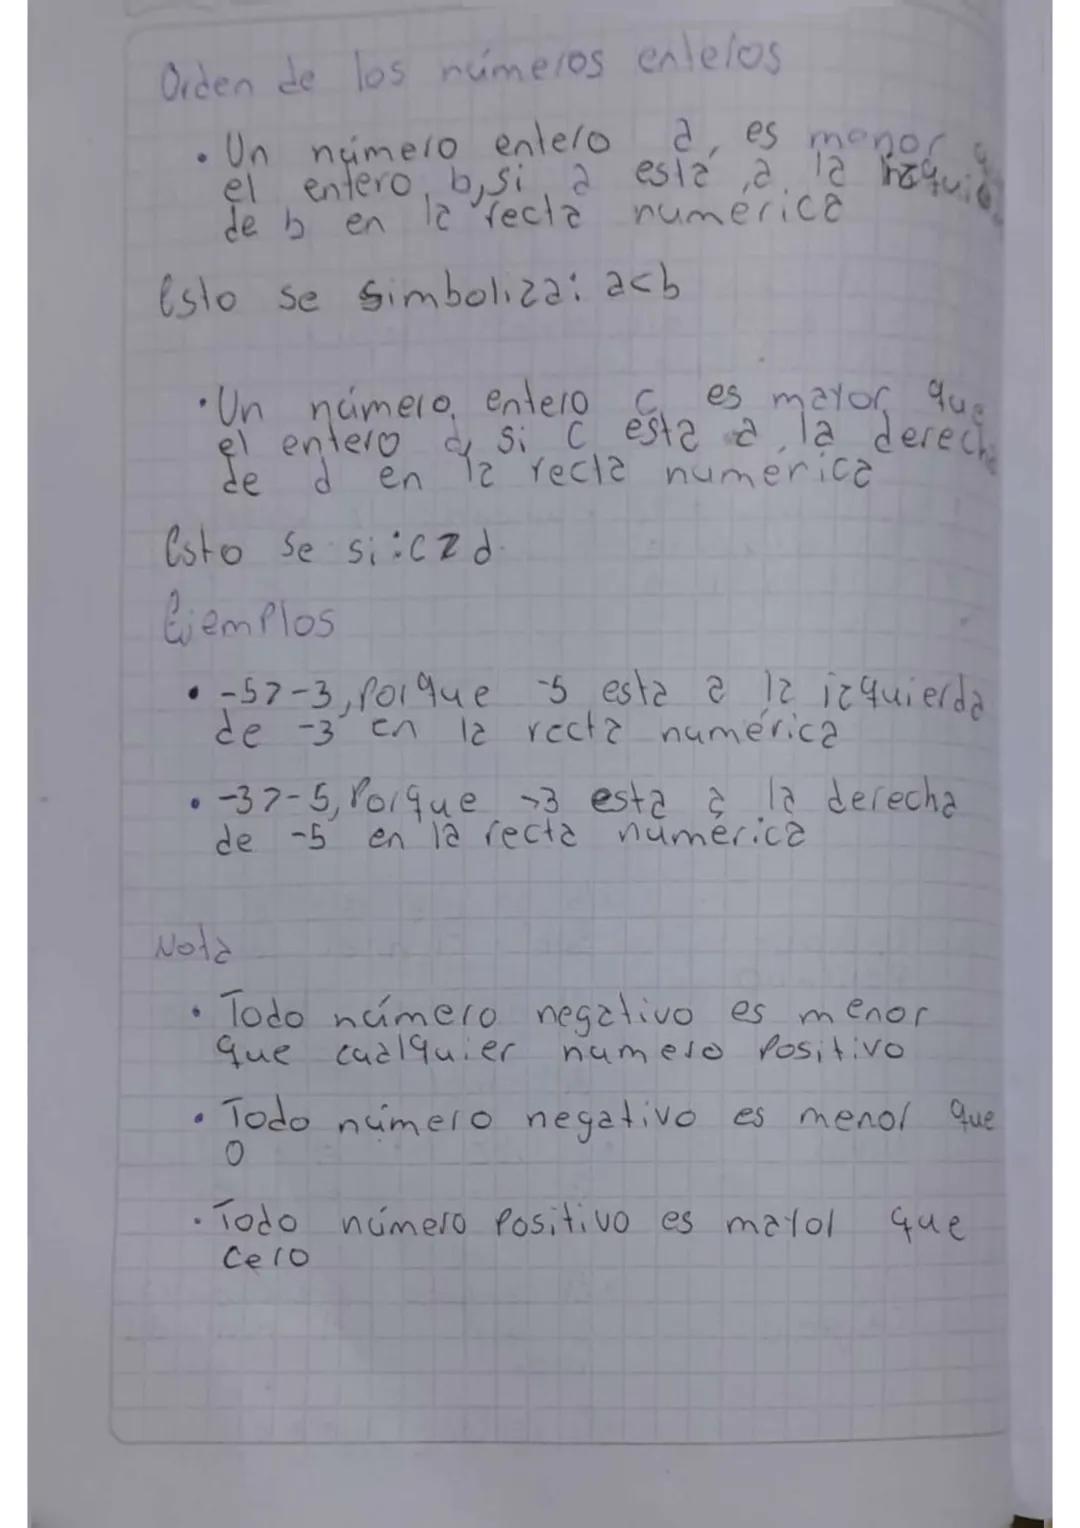 Orden de los números enteros
• Un número entero a, es menor q
el entero b, si a está a la izquie
de b en la recta numérica
Esto se simboliza: a<b
• Un número entero c es mayor que
el entero d, si c esta a la derecha
de d en la recta numérica
Esto se si: c z d
Ejemplos
• -57-3, Porque -5 esta a la izquierda
de -3 en la recta numérica
• -37-5, Porque -3 esta a la derecha
de -5 en la recta numérica
Nota
• Todo número negativo es menor
que cualquier numero Positivo
• Todo número negativo es menor que
0
• Todo número Positivo es mayor que
cero